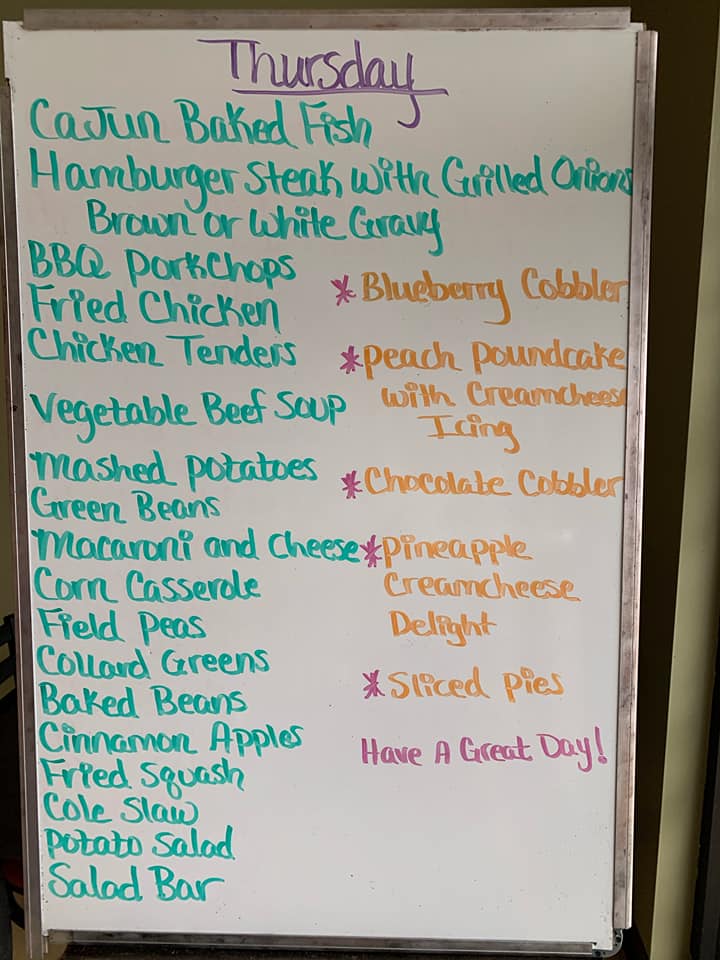 Thursday
Cajun Baked Fish
Hamburger Steak with Grilled Onions
Brown or White Gravy
BBQ Porkchops
Fried Chicken
Chicken Tenders
Vegetable Beef Soup
Mashed Potatoes
Green Beans
Macaroni and Cheese
Corn Casserole
Field Peas
Collard Greens
Baked Beans
Cinnamon Apples
Fried Squash
Cole Slaw
Potato Salad
Salad Bar
*Blueberry Cobbler
*Peach Poundcake
with Creamcheese
Icing
*Chocolate Cobbler
*Pineapple
Creamcheese
Delight
*Sliced Pies
Have A Great Day!